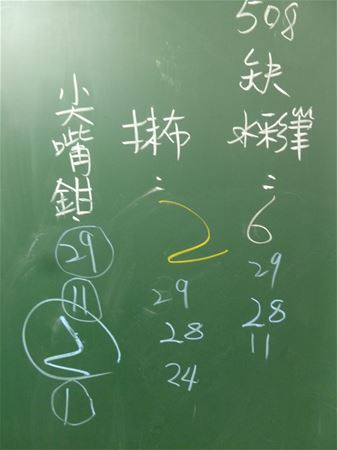 508
缺
水彩筆
:
6
29
28
11
抹布
:
2
29
28
24
尖嘴鉗:
29
11
2
1